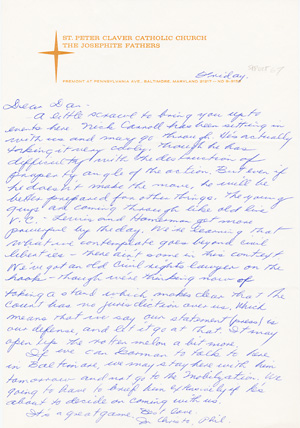 ST. PETER CLAVER CATHOLIC CHURCH
THE JOSEPHITE FATHERS
PRESIDENT AT PENNSYLVANIA AVE., BALTIMORE, MARYLAND 21217
Friday.
Dear Dan.
A little scrawl to bring you up to
events here. Nick Carroll has been sitting in
with us and may go through. He's actually
looking at very coolly, though he has
difficulty with the destruction of
property angle of the action. But even if
he doesn't make the move, he will be
better prepared for other things. The young
guys are coming through like old
V.C. - and more
powerful by the day. We're learning that
what we contemplate goes beyond civil
liberties - there ain't some in this context
We've got an old Civil rights lawyer on the
hook - though we're thinking now of
taking a stand which makes clear that the
Court has no jurisdiction over us. Which
means that we say our statement (press) is
our defense, and let it go at that. It may
open up the melon a bit more.
If we can to talk to here
in Baltimore, we may stay here with him
tomorrow and not go to the Mobilization. We
going to have to brief him if he's
about to decide on coming with us.
It's a great game. Best love.
In Christ, Phil.